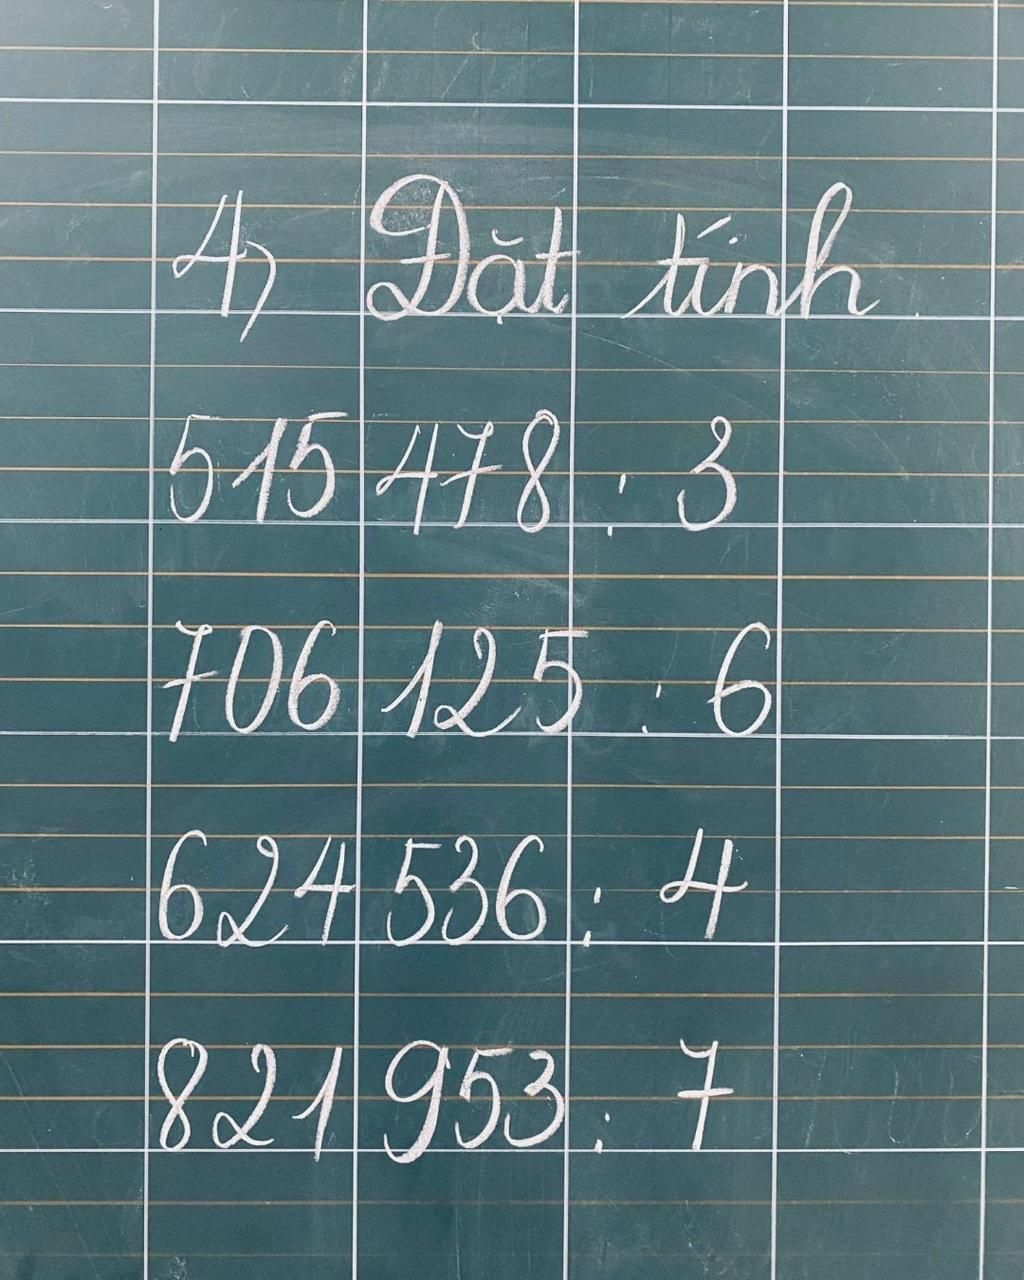 4) Đặt tính
515 478 : 3
706 125 : 6
624 536 : 4
821 953 : 7